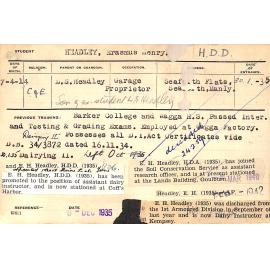 STUDENT HEADLEY, Erasmus Henry. H.D.D.
DATE OF BIRTH. RELIGION. PARENT OR GUARDIAN. OCCUPATION. ADDRESS. DATE OF ENTRANCE.
7-4-14 C of E D.S. Headley Garage Proprietor Seaforth Flats, Seaforth, Manly. 30/1/35
Son of ex student L. Headley
PREVIOUS TRAINING: Barker College and Wagga H.S. Passed Inter.
and Testing & Grading Exams. Employed at Wagga Factory.
Possesses all D.I. Act Certificates Vide
D.B. 34/3872 dated 16.11.34.
Dairying II left Oct 1935
E. H. Headley, H.D.D. (1935), has been
and E. H. Headley, H.D.D. (1935)
to the position of assistant dairy
instructor, and is now stationed at Coff's
Harbor.
DEC 1935
E. H. Headley, H.D.D. (1935), has joined the
Soil Conservation Service as assistant
research officer, and is at present stationed
at the Lands Building, Goulburn.
E. H. HEADLEY, H.D.D. (1935)
was discharged from
the 1st Armored Division in September of
last year and is now Dairy Instructor at
Kempsey.